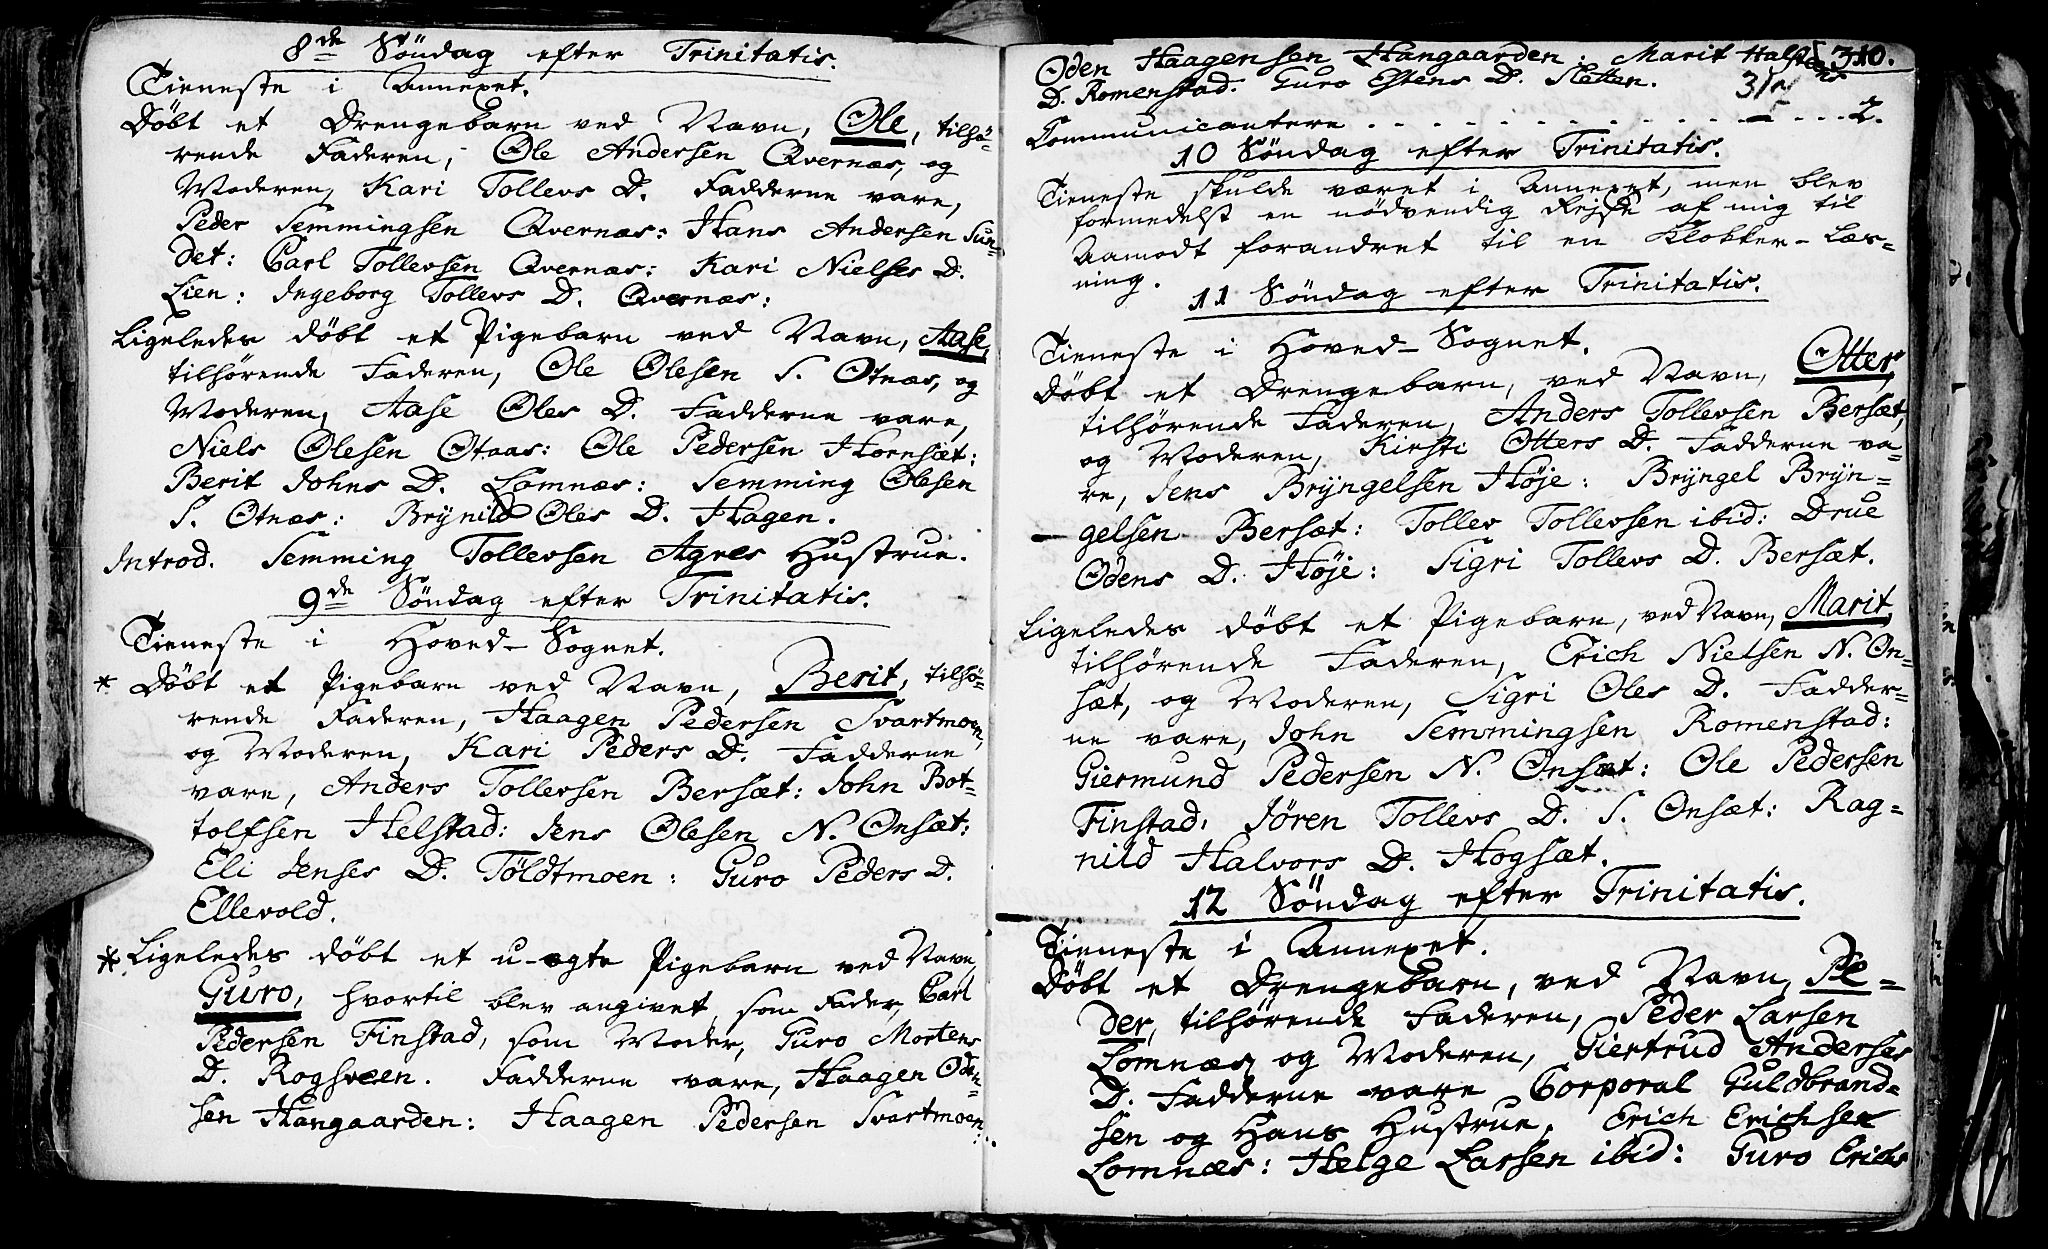 8de Söndag efter Trinitatis.
Tieneste i Annexet.
Döbt et Drengebarn ved Navn, Ole, tilhö-
rende Faderen, Ole Andersen Qvernæs, og
Moderen, Kari Tollevs D. Fadderne vare,
Peder Semmingsen Qvernæs: Hans Andersen Sun-
det: Carl Tollevsen Qvernæs: Kari Nielses D.
Lien: Ingeborg Tollevs D. Qvernæs:
Ligeledes döbt et Pigebarn ved Navn, Aase,
tilhörende Faderen, Ole Olesen S. Otnæs, og
Moderen, Aase Oles D. Fadderne vare,
Niels Olesen Otnæs: Ole Pedersen Hornsæt:
Berit Johns D. Lomnæs: Semming Olesen
S. Otnæs: Brÿnild Oles D. Hagen.
Introd. Semming Tollevsen Agnes Hustrue.
9de Söndag efter Trinitatis.
Tieneste i Hoved-Sognet.
* Döbt et Pigebarn ved Navn, Berit, tilhö-
rende Faderen, Haagen Pedersen Svartmoen,
og Moderen, Kari Peders D. Fadderne
vare, Anders Tollevsen Bersæt: John Bot-
tolfsen Helstad: Jens Olesen N. Onsæt:
Eli Jenses D. Töldtmoen: Guro Peders D.
Ellevold.
* Ligeledes döbt et u-ægte Pigebarn ved Navn,
Guro, hvortil blev angivet, som Fader, Carl
Pedersen Finstad, som Moder, Guro Mortens
D. Rogsveen. Fadderne vare, Haagen Oden-
sen Hangaarden: Haagen Pedersen Svartmoen:
310.
Oden Haagensen Hangaarden: Marit Halsteens
D. Romenstad. Guro Estens D. Sletten.
Communicantere . . . . . . . . . . . . 2.
10 Söndag efter Trinitatis.
Tieneste skulde været i Annexet, men blev
formedelst en nödvendig Rejse af mig til
Aamodt forandret til en Klokker-Læs-
ning.
11 Söndag efter Trinitatis.
Tieneste i Hoved-Sognet.
Döbt et Drengebarn, ved Navn, Otter,
tilhörende Faderen, Anders Tollevsen Bersæt,
og Moderen, Kirsti Otters D. Fadderne va-
re, Jens Brÿngelsen Höje: Brÿngel Brÿn-
gelsen Bersæt: Tollev Tollevsen ibid: Drue
Odens D. Höje: Sigri Tollevs D. Bersæt.
Ligeledes döbt et Pigebarn, ved Navn, Marit,
tilhörende Faderen, Erich Nielsen N. On-
sæt, og Moderen, Sigri Oles D. Fadder-
ne vare, John Semmingsen Romenstad:
Giermund Pedersen N. Onsæt: Ole Pedersen
Finstad, Jören Tollevs D. S. Onsæt: Rag-
nild Halvors D. Hogsæt.
12 Söndag efter Trinitatis.
Tieneste i Annexet.
Döbt et Drengebarn, ved Navn, Pe-
der, tilhörende Faderen, Peder Larsen
Lomnæs, og Moderen, Giertrud Anderses
D. Fadderne vare Corporal Guldbrand-
sen og Hans Hustrue, Erich Erichsen
Lomnæs: Helge Larsen ibid: Guro Erichs